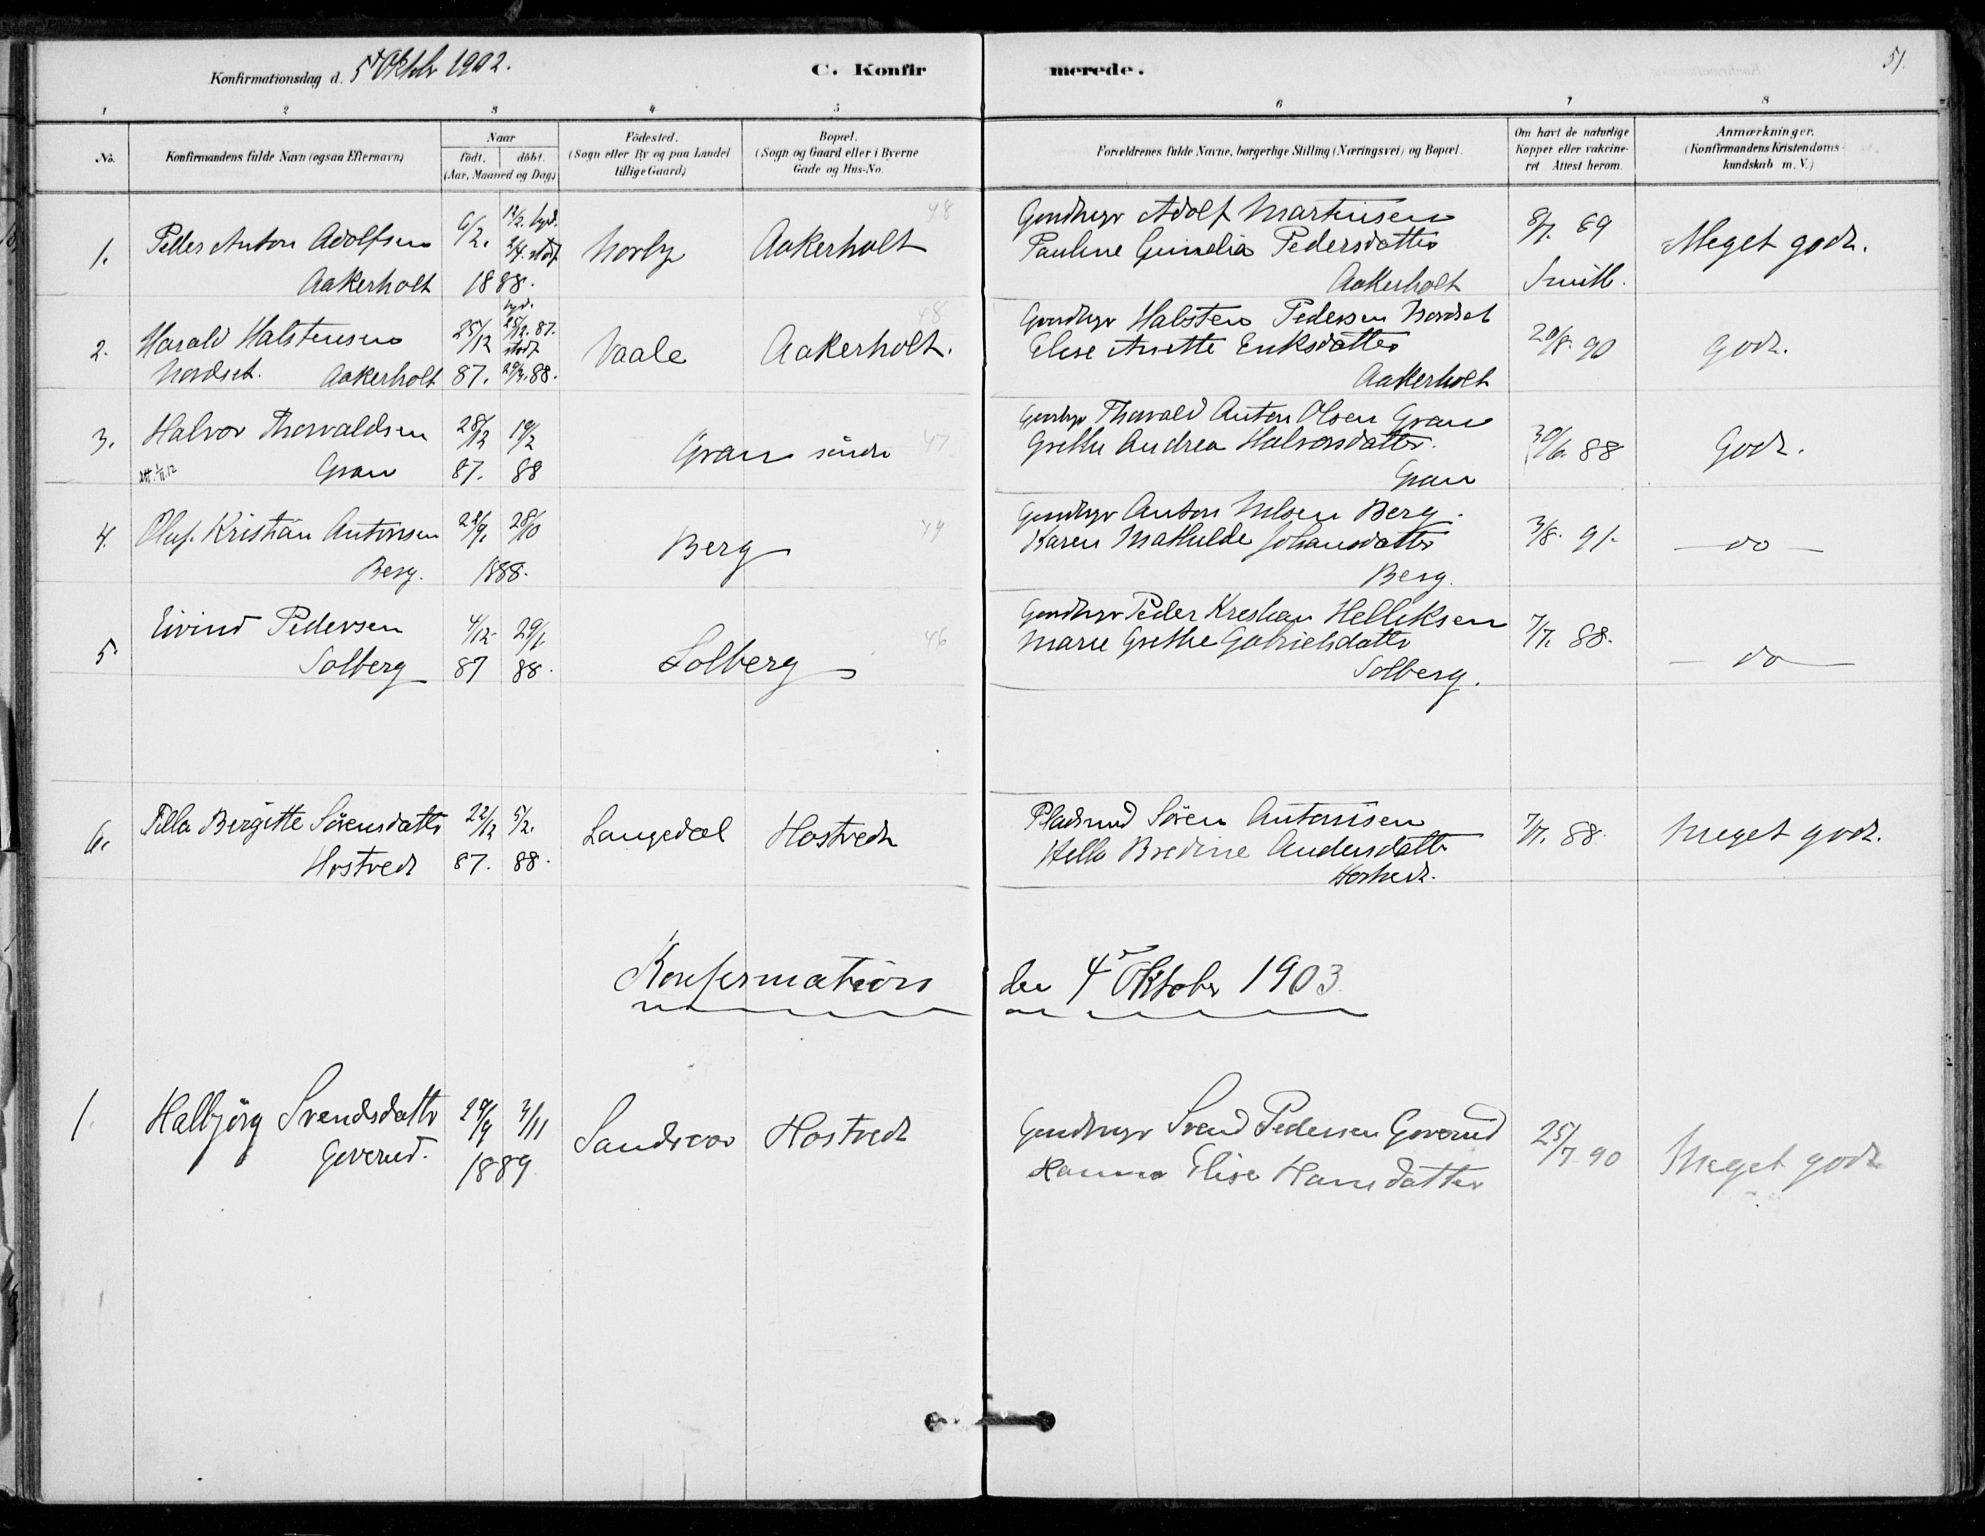 Konfirmationsdag d. 5t Oktobr 1902.
C. Konfir merede.
51.
1 2 3 4 5 6 7 8
No.
Konfirmandens fulde Navn (ogsaa Efternavn)
Naar
født. døbt.
(Aar, Maaned og Dag)
Fødested.
(Sogn eller By og paa Landet
tillige Gaard)
Bopæl.
(Sogn og Gaard eller i Byerne
Gade og Hus-No.
Forældrenes fulde Navne, borgerlige Stilling (Næringsvei) og Bopæl.
Om havt de naturlige
Kopper eller vakcine-
ret Attest herom.
Anmærkninger.
(Konfirmandens Kristendoms-
kundskab m. V.)
1.
Peder Anton Adolfsen
Aakerholt
6/2.
1888.
Norby
Aakerholt
48
Adolf Martinsen
Pauline Pedersdatter
Aakerholt
8/7. 89
Smith.
Meget godt.
2.
Harald Halstensen
Nordset. Aakerholt
25/12
87.
25/12. 87.
29/3. 88.
Vaale
Aakerholt.
48
Halsten Pedersen Nordset
Elise Anette Eriksdatter
Aakerholt
20/8. 90
Godt.
3.
Halvor Thorvaldsen
Gran
28/12
87.
19/2
88
Gran søndre
47
Thorvald Anton Olsen Gran
Grethe Andrea Halvorsdatter.
Gran
30/6. 88
Godt.
4.
Oluf Kristian Antonsen
Berg.
28/10
1888.
Berg
Anton Nilsen Berg.
Karen Mathilde Johansdatter
Berg.
3/8. 91.
— do —
5
Eivind Pedersen
Solberg
4/12.
87
29/1.
88.
Solberg
46
Peder Kristian Helliksen
Marie Grethe Gabrielsdatter
Solberg.
7/7. 88.
— do —
6.
Bergitte Sørensdatter
Hostvedt
22/12
87.
5/2.
88.
Langedal
Hostvedt
Pladsmd Søren Antonsen
Bredine Andersdatter
Hostvedt.
7/7. 88.
Meget godt.
Konfirmation den 4de Oktober 1903
1.
Halbjørg Svendsdatter
Goverud.
29/9
3/11
1889
Hostvedt
Svend Pedersen Goverud
Hanna Elise Hansdatter
25/7 90
Meget godt